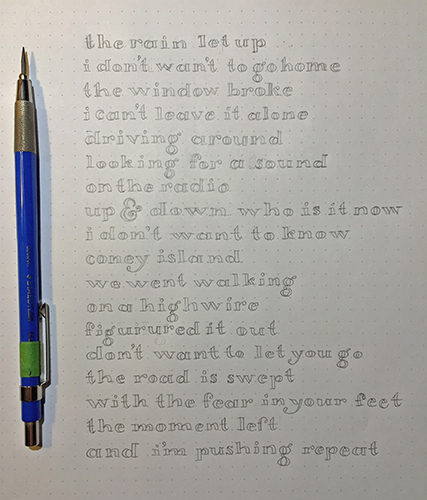 the rain let up
i don't want to go home
the window broke
i can't leave it alone
driving around
looking for a sound
on the radio
up & down who is it now
i don't want to know
coney island
we went walking
on a highwire
figurured it out
don't want to let you go
the road is swept
with the fear in your feet
the moment left
and i'm pushing repeat